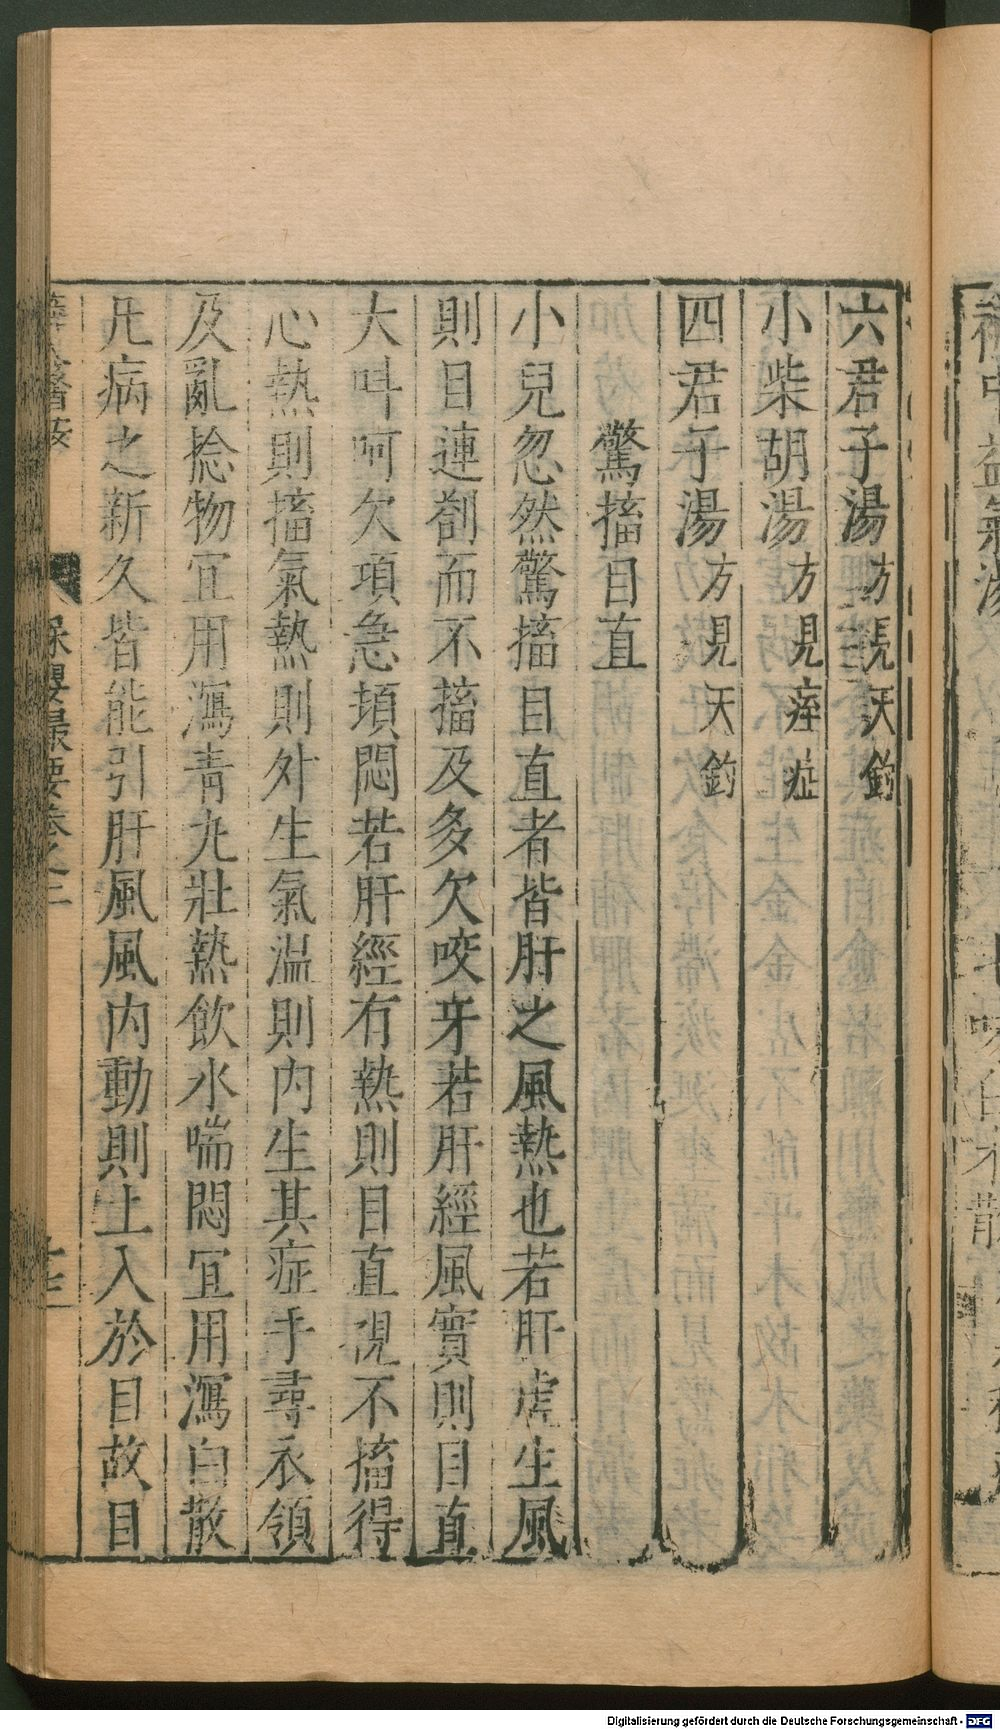 六君子湯方見天釣
小柴胡湯方見痓症
四君子湯方見天釣
驚搐目直
小兒忽然驚搐目直者皆肝之風熱也若肝虛生風
則目連劄而不搐及多欠咬牙若肝經風實則目直
大呌呵欠項急頓悶若肝經有熱則目直視不搐得
心熱則搐氣熱則外生氣溫則內生其症手尋衣領
及亂捻物宜用瀉青丸壯熱飲水喘悶宜用瀉白散
凡病之新久皆能引肝風風內動則上入於目故目
保嬰撮要卷之二
Digitalisierung gefördert durch die Deutsche Forschungsgemeinschaft - DFG